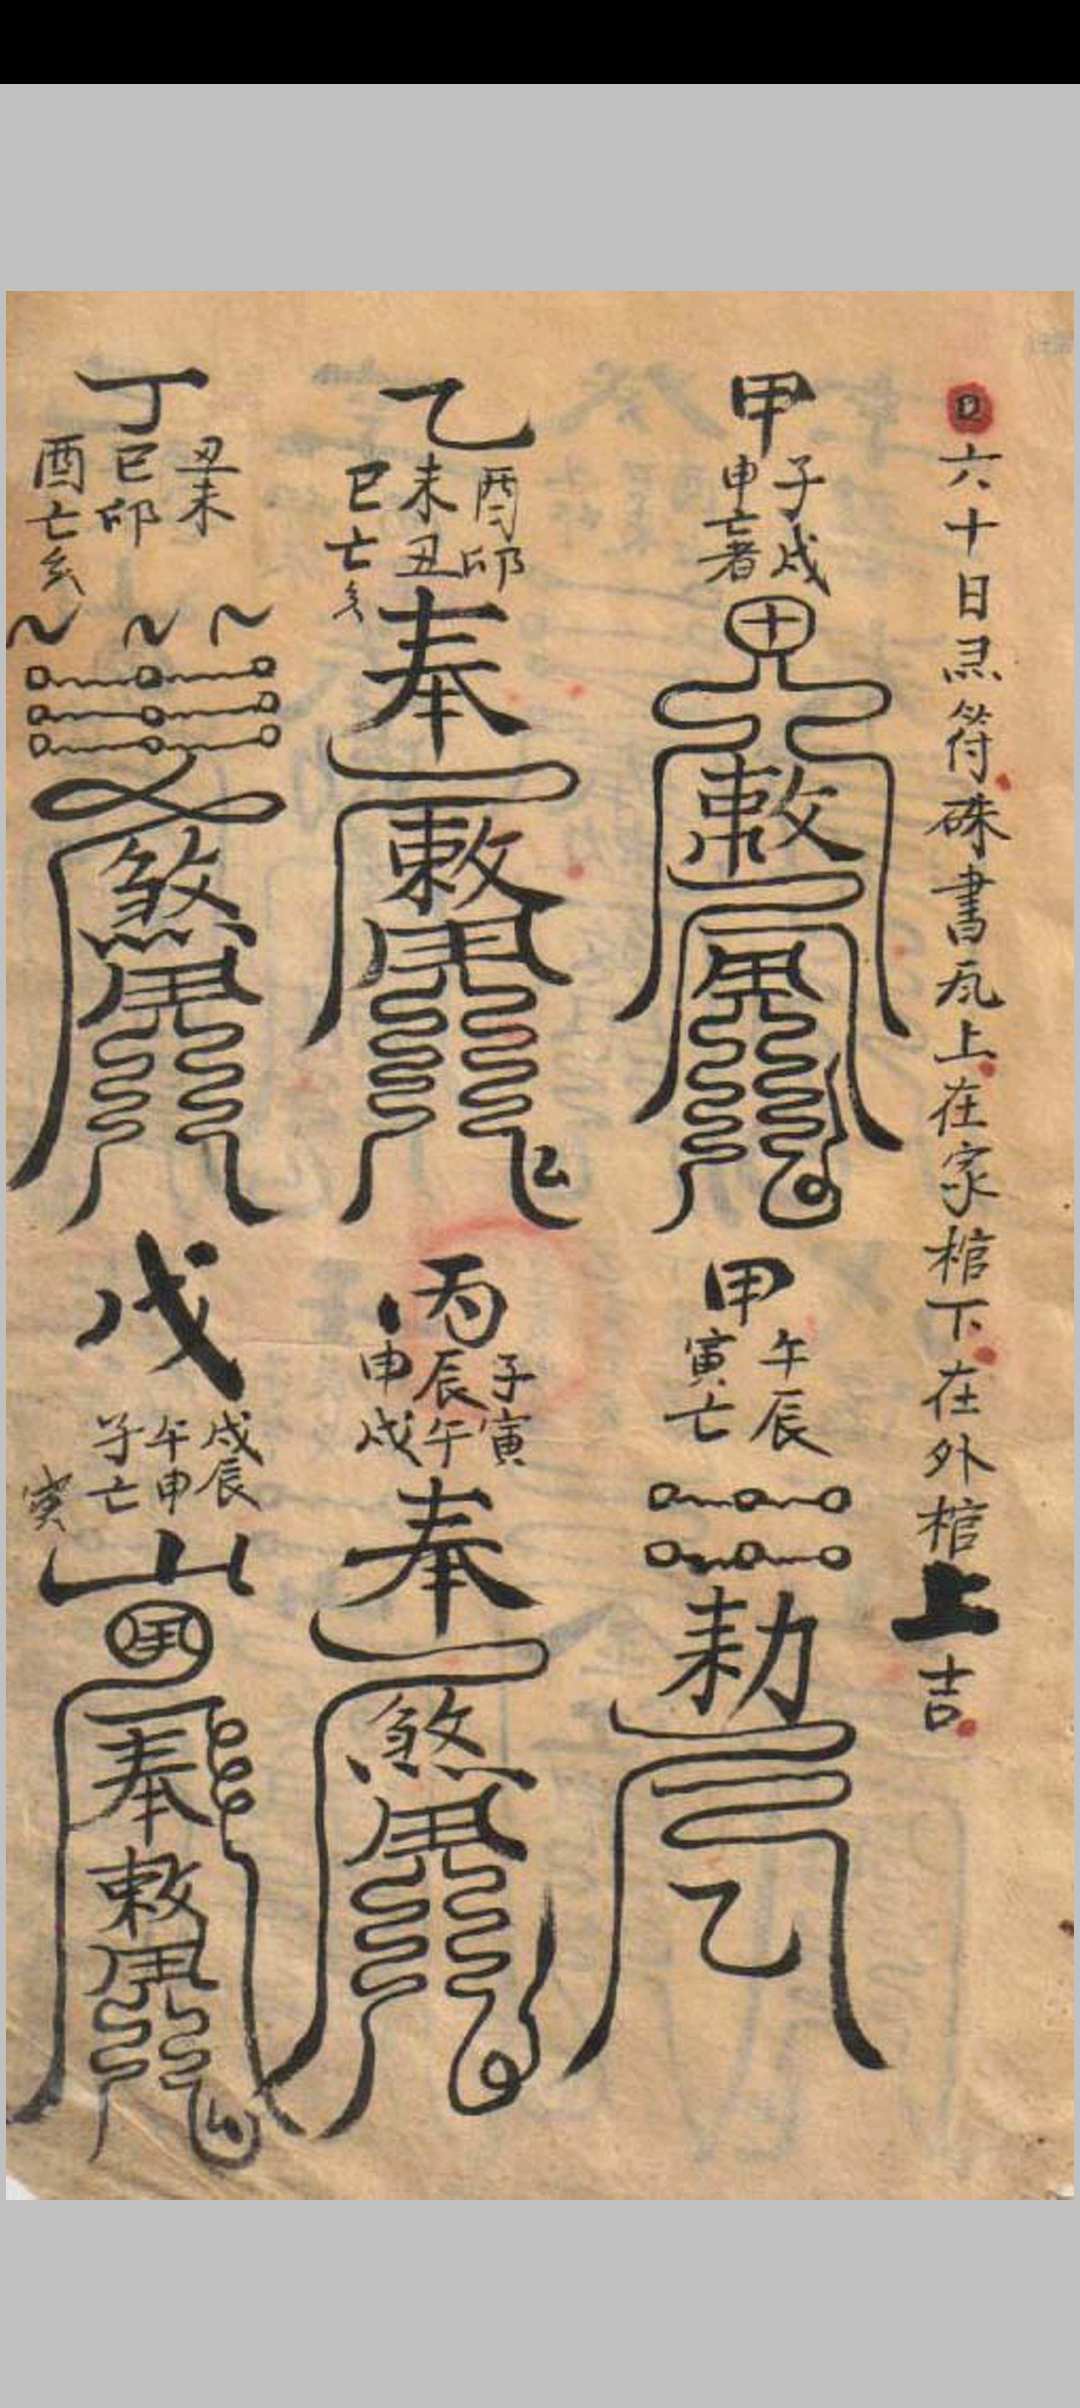 六十日煞符硃書瓦上在家棺下在外棺上吉
甲
子戌
申亡者
敕
乙
酉卯
未丑
巳亡亥
奉
敕
丁
丑未
巳卯
酉亡亥
煞
甲
午辰
寅亡
勅
乙
丙
子寅
辰午
申戌
奉
煞
戊
戌辰
午申
子亡
寅
山
奉
敕